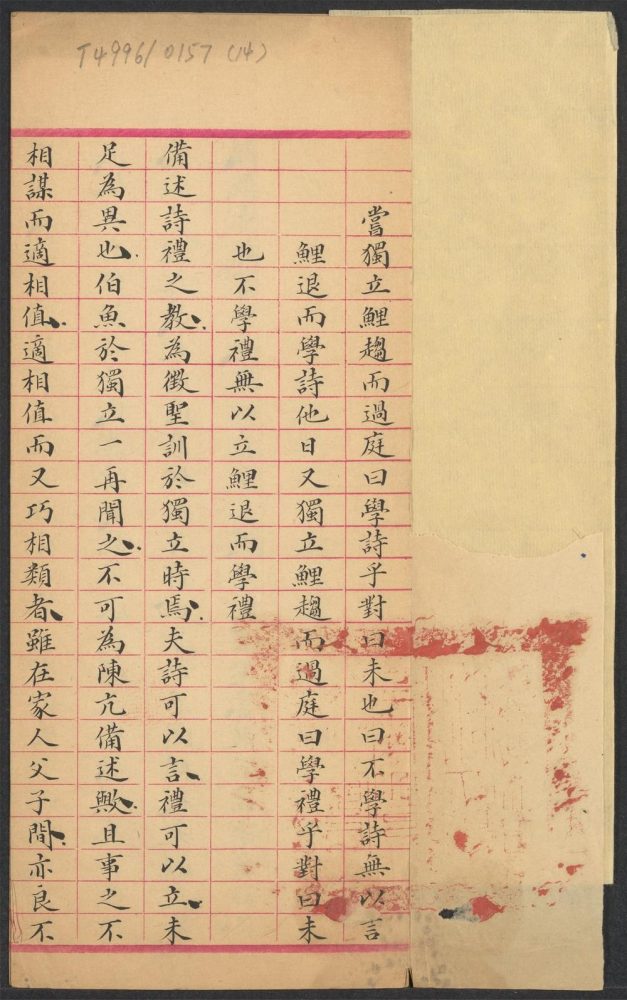 T4996/0157 (14)
嘗獨立鯉趨而過庭曰學詩乎對曰未也曰不學詩無以言
鯉退而學詩他日又獨立鯉趨而過庭曰學禮乎對曰未
也不學禮無以立鯉退而學禮
備述詩禮之教為徵聖訓於獨立時焉夫詩可以言禮可以立未
足為異也伯魚於獨立一再聞之不可為陳亢備述歟且事之不
相謀而適相值適相值而又巧相類者雖在家人父子間亦良不